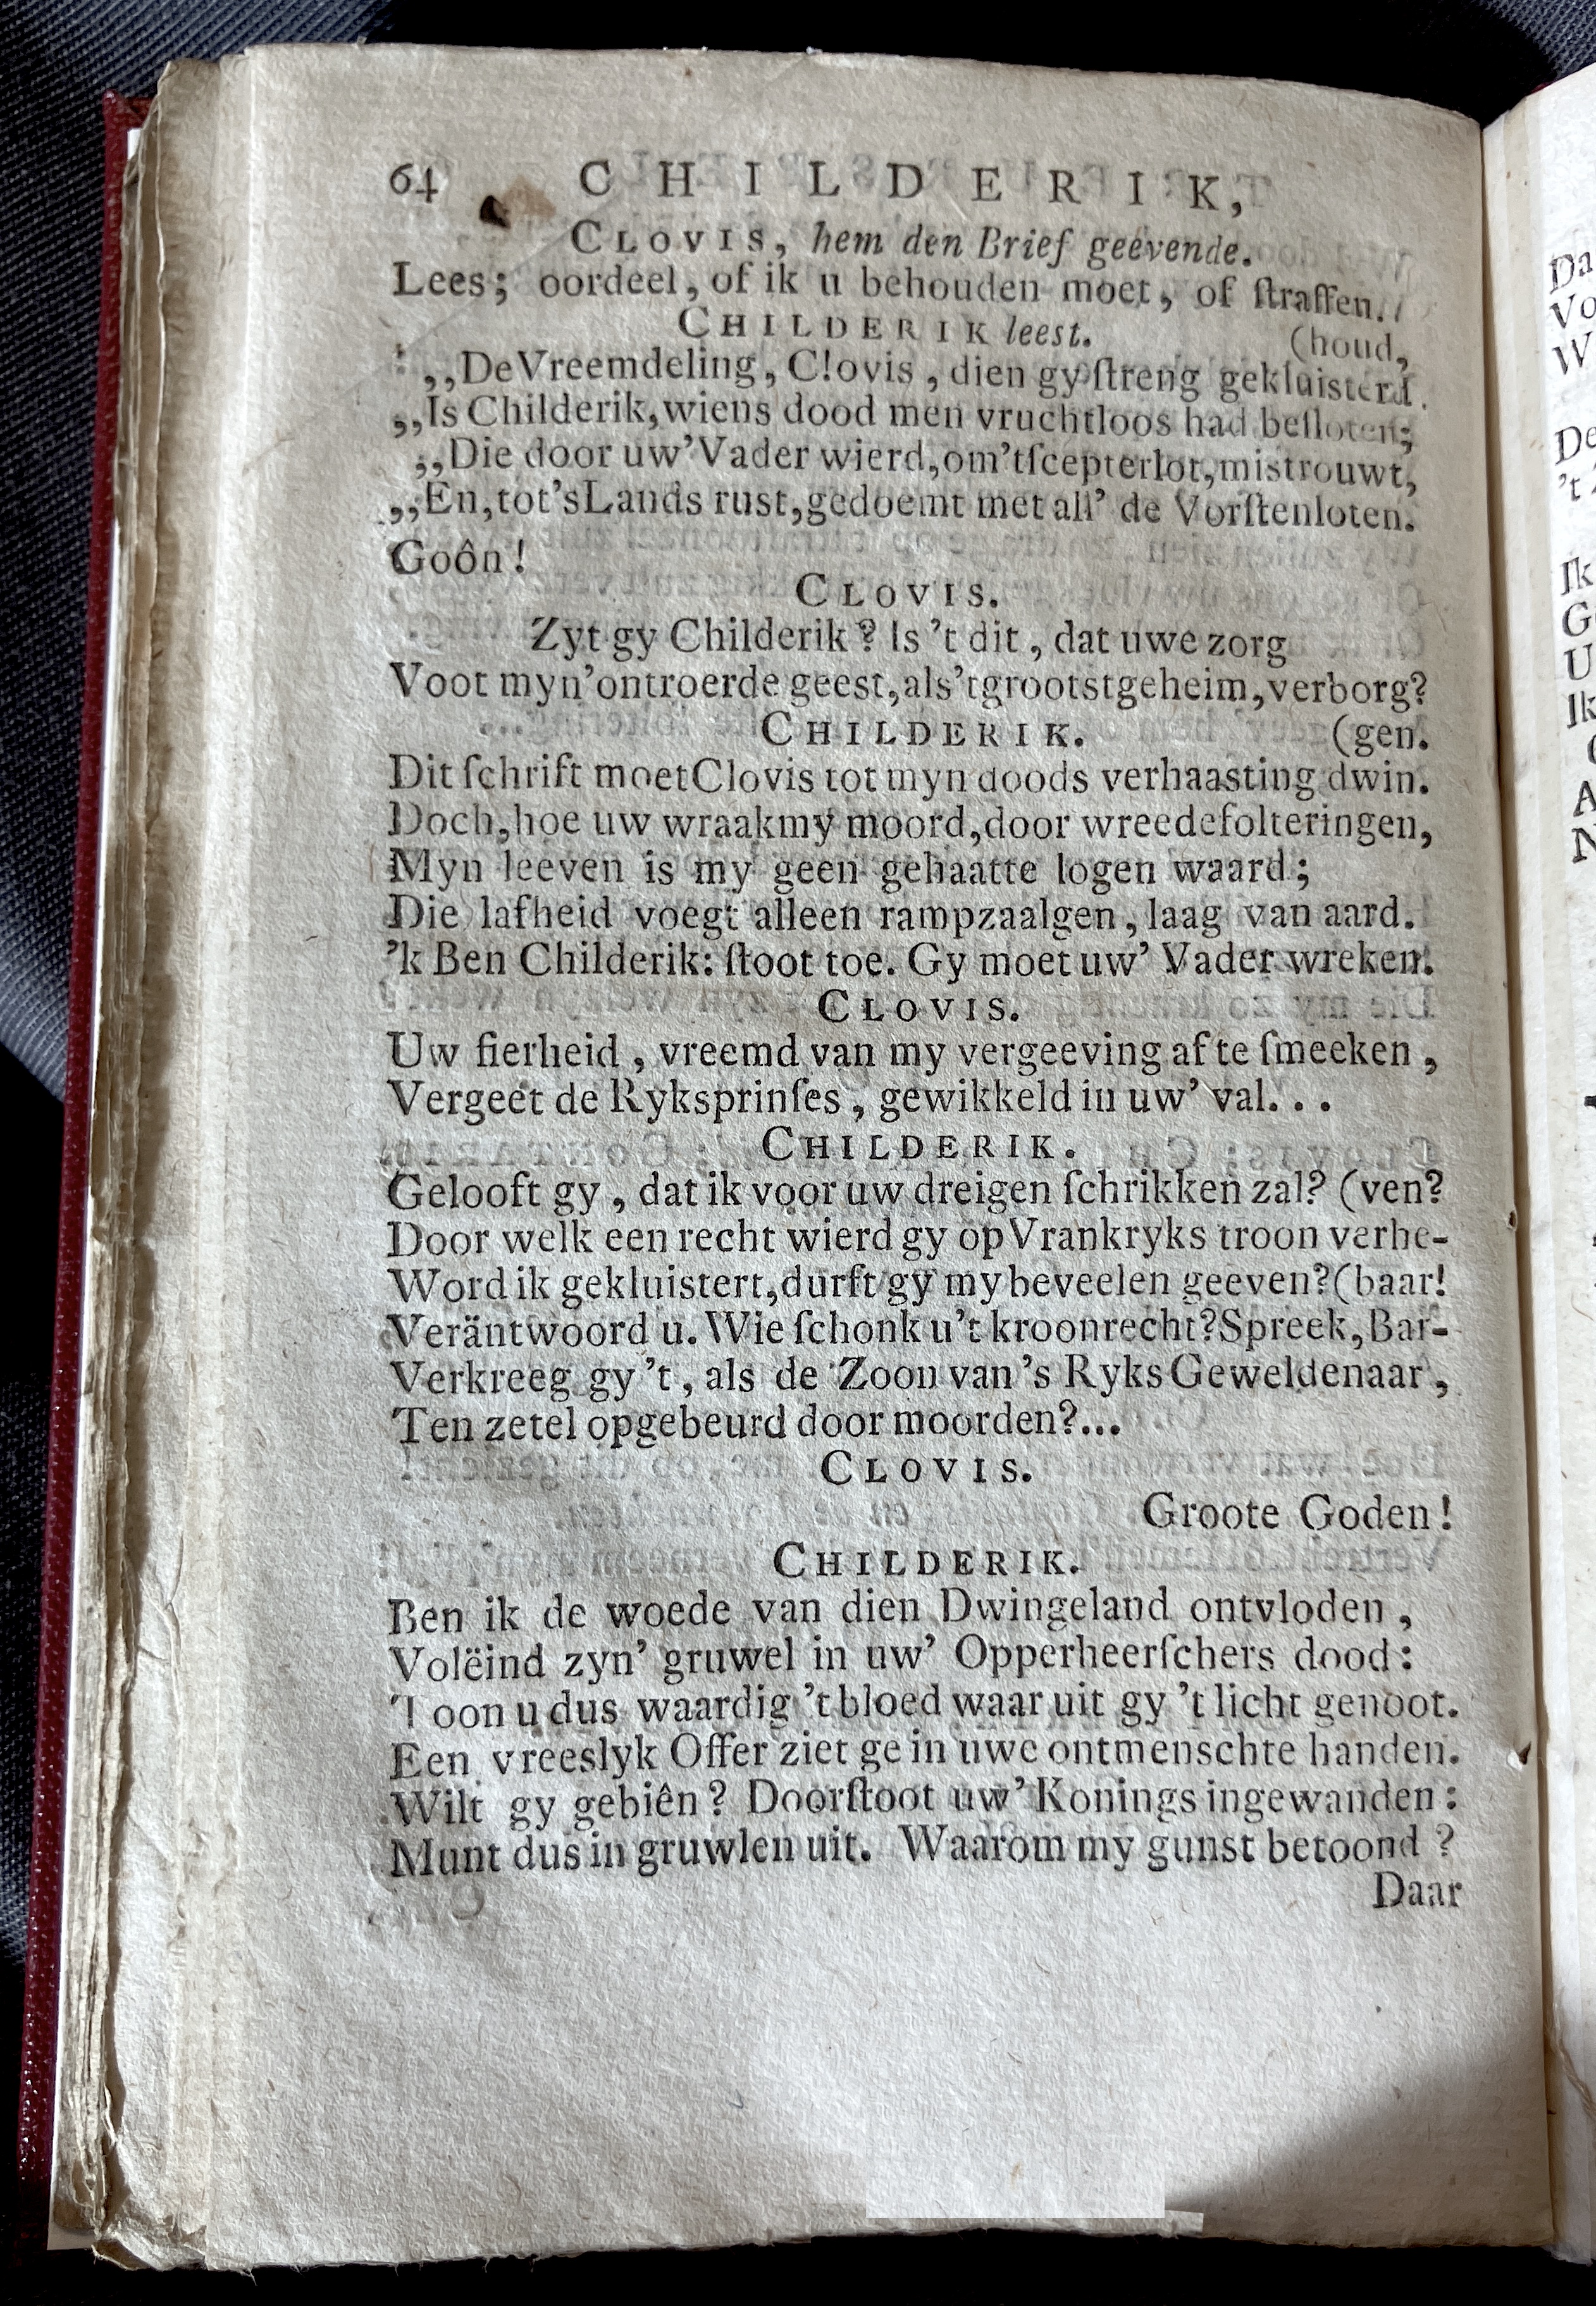 64 CHILDERIK,
CLOVIS, hem den Brief geevende.
Lees; oordeel, of ik u behouden moet, of ſtraffen.
CHILDERIK leest. (houd,
,,De Vreemdeling, Clovis, dien gy ſtreng gekluisterd
,,Is Childerik, wiens dood men vruchtloos had beſloten;
,,Die door uw' Vader wierd, om 't ſcepterlot, mistrouwt,
,,En, tot 's Lands rust, gedoemt met all' de Vorſtenloten.
Goôn!
CLOVIS.
Zyt gy Childerik? Is 't dit, dat uwe zorg
Voot myn' ontroerde geest, als 't grootst geheim, verborg?
CHILDERIK. (gen.
Dit ſchrift moet Clovis tot myn doods verhaasting dwin.
Doch, hoe uw wraak my moord, door wreede folteringen,
Myn leeven is my geen gehaatte logen waard;
Die lafheid voegt alleen rampzaalgen, laag van aard.
'k Ben Childerik: ſtoot toe. Gy moet uw' Vader wreken.
CLOVIS.
Uw fierheid, vreemd van my vergeeving af te ſmeeken,
Vergeet de Ryksprinſes, gewikkeld in uw' val...
CHILDERIK.
Gelooft gy, dat ik voor uw dreigen ſchrikken zal? (ven?
Door welk een recht wierd gy op Vrankryks troon verhe-
Word ik gekluistert, durft gy my beveelen geeven? (baar!
Veräntwoord u. Wie ſchonk u 't kroonrecht? Spreek, Bar-
Verkreeg gy 't, als de Zoon van 's Ryks Geweldenaar,
Ten zetel opgebeurd door moorden?...
CLOVIS.
Groote Goden!
CHILDERIK.
Ben ik de woede van dien Dwingeland ontvloden,
Volëind zyn' gruwel in uw' Opperheerſchers dood:
Toon u dus waardig 't bloed waar uit gy 't licht genoot.
Een vreeslyk Offer ziet ge in uwe ontmenschte handen.
Wilt gy gebiên? Doorſtoot uw' Konings ingewanden:
Munt dus in gruwlen uit. Waarom my gunst betoond?
Daar